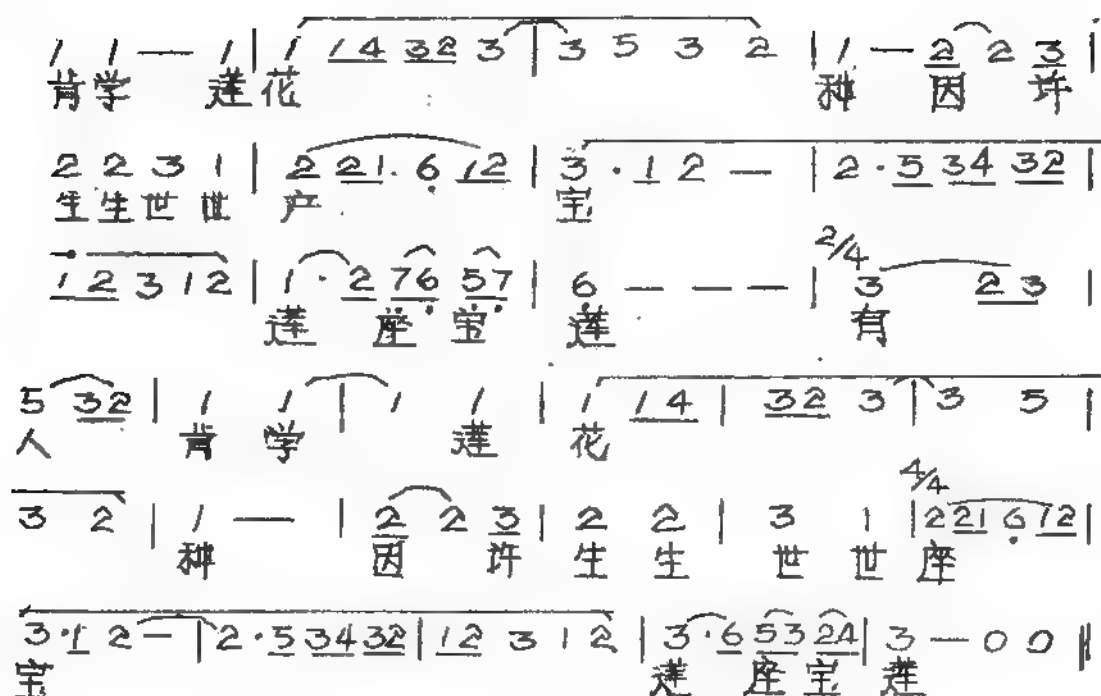 1 1 — 1 | 1 14 32 3 | 3 5 3 2 | 1 — 2 2 3 |
肯学 莲花 种 因 许
2 2 3 1 | 2 21. 6 12 | 3 · 1 2 — | 2 · 5 34 32 |
生生世世 产 宝
12 3 1 2 | 1 · 2 76 57 | 6 — — — | 2/4 3 23 |
莲 座 宝 莲 有
5 32 | 1 1 | 1 1 | 1 14 | 32 3 | 3 5 |
人 肯 学 莲 花
3 2 | 1 — | 2 2 3 | 2 2 | 3 1 | 4/4 2 21 6 12 |
种 因 许 生 生 世 世 座
3 · 1 2 — | 2 · 5 34 32 | 12 3 1 2 | 3 · 6 53 24 | 3 — 0 0 ‖
宝 莲 座 宝 莲